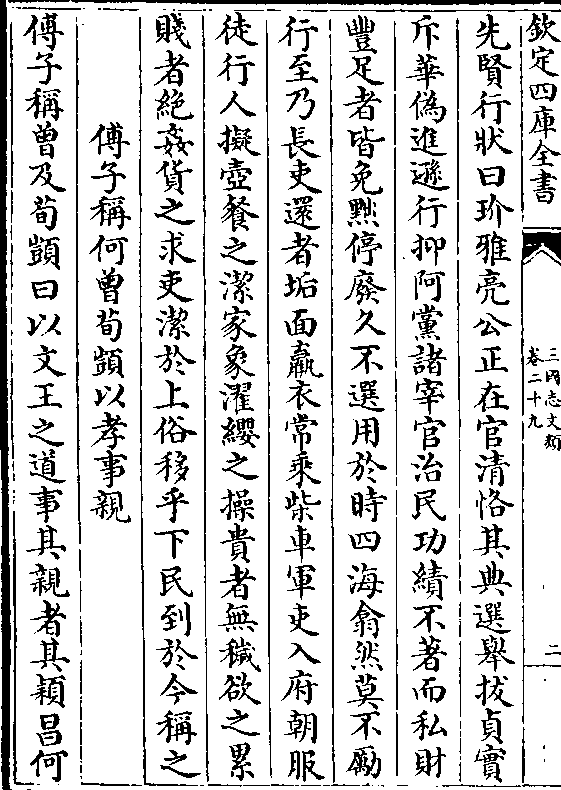 欽定四庫全書
三國志文類
卷二十九
二
先賢行狀曰玠雅亮公正在官清恪其典選舉拔貞實
斥華偽進遜行抑阿黨諸宰官治民功績不著而私財
豐足者皆免黜停廢久不選用於時四海翕然莫不勵
行至乃長吏還者垢面羸衣常乘柴車軍吏入府朝服
徒行人擬壺餐之潔家象濯纓之操貴者無穢欲之累
賤者絕姦貨之求吏潔於上俗移乎下民到於今稱之
傅子稱何曾荀顗以孝事親
傅子稱曾及荀顗曰以文王之道事其親者其穎昌何